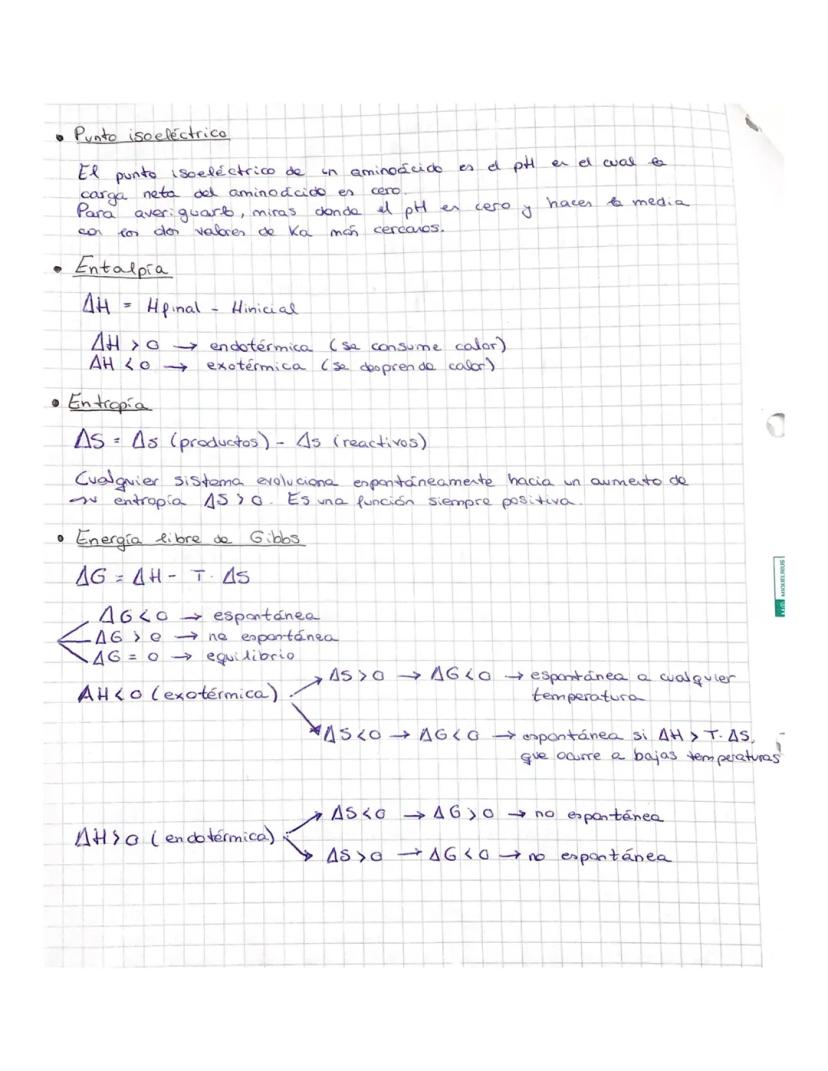 • Punto isoeléctrico
El punto isoeléctrico de un aminoácido es el pH en el cual la
carga neta del aminoácido es cero.
Para averiguarlo, miras donde el pH es cero y haces la media
con los dos valores de Ka más cercanos.
• Entalpía
ΔH = Hfinal - Hinicial
ΔH > 0 → endotérmica (se consume calor)
ΔH < 0 → exotérmica (se desprende calor)
• Entropía
ΔS = Δs (productos) - Δs (reactivos)
Cualquier sistema evoluciona espontáneamente hacia un aumento de
su entropía ΔS > 0. Es una función siempre positiva.
• Energía libre de Gibbs
ΔG = ΔH - T · ΔS
ΔG < 0 → espontánea
ΔG > 0 → no espontánea
ΔG = 0 → equilibrio
ΔH < 0 (exotérmica)
ΔS > 0 → ΔG < 0 → espontánea a cualquier
temperatura
ΔS < 0 → ΔG < 0 → espontánea si ΔH > T · ΔS,
que ocurre a bajas temperaturas
ΔH > 0 (endotérmica)
ΔS < 0 → ΔG > 0 → no espontánea
ΔS > 0 → ΔG < 0 → no espontánea